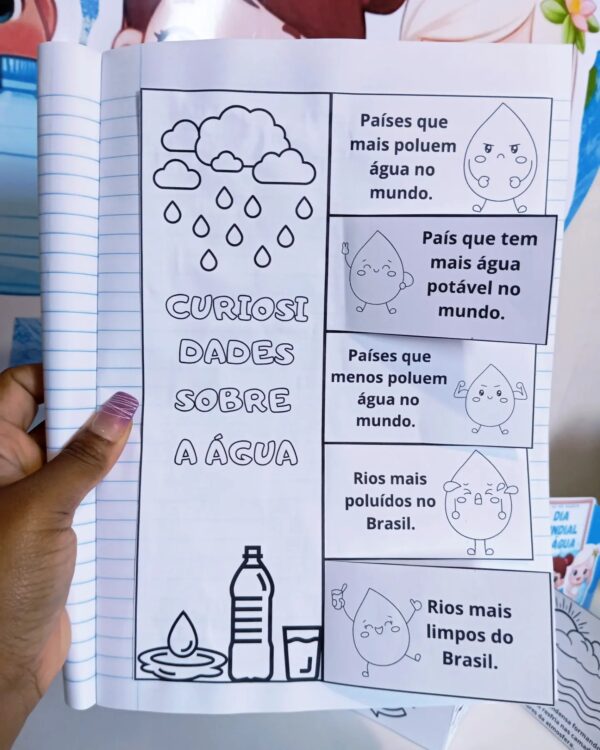 CURIOSI
DADES
SOBRE
A ÁGUA
Países que
mais poluem
água no
mundo.
País que tem
mais água
potável no
mundo.
Países que
menos poluem
água no
mundo.
Rios mais
poluídos no
Brasil.
Rios mais
limpos do
Brasil.
DIA